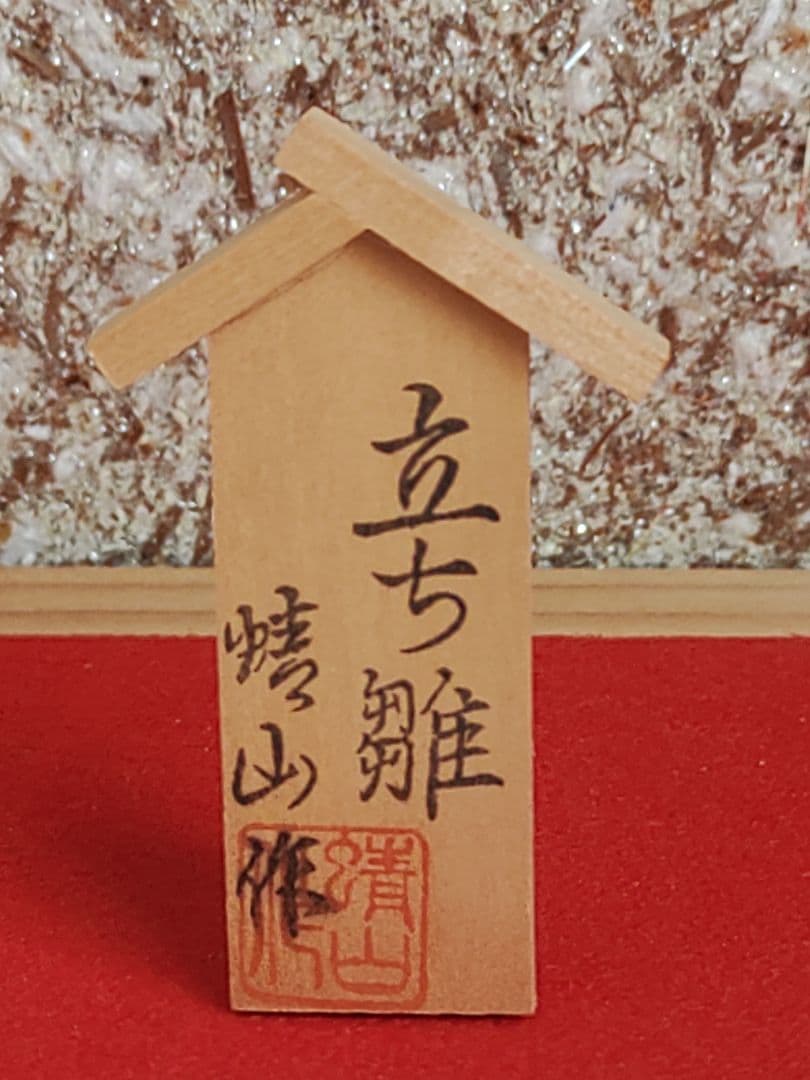 立ち雛
蜻山作
蜻山